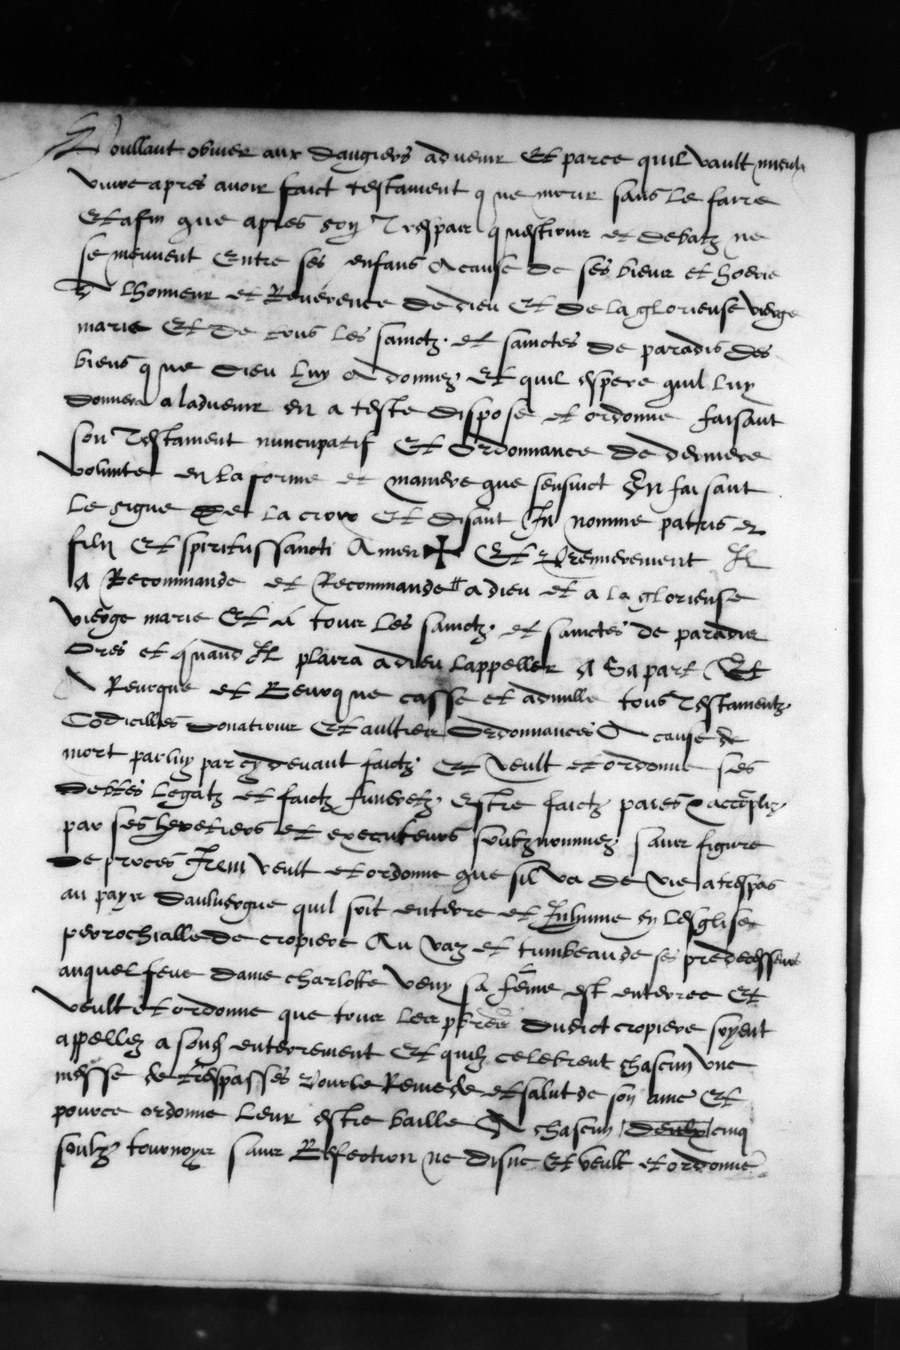 Voullant obvier aux dangiers advenir Et parce quil vault mieulx
vivre apres avoir faict testament que morir sans le faire
Et afin que apres son Trespas questions et debatz ne
se meuvent Entre ses enfans a cause de ses biens et hoerie
A lhonneur et Reverence de dieu Et de la glorieuse vierge
marie Et de tous les sainctz et sainctes de paradis des
biens que dieu luy a donnez Et quil espere quil luy
donnera a ladvenir en a teste dispose et ordonne faisant
son Testament nuncupatif Et Ordonnance de derniere
volunte en la forme et maniere que sensuict En faisant
le signe de la croix Et disant In nomine patris et
filii Et spiritussancti Amen ✝ Et Premierement Il
a Recommande et Recommande a dieu et a la glorieuse
vierge marie Et a tous les sainctz et sainctes de paradis
Ores et quand Il plaira a dieu lappeller a sa part Et
A Revoque et Revoque casse et adnulle tous Testamentz
Codicilles donations Et aultres Ordonnances A cause de
mort par luy par cy devant faictz Et veult et ordonne ses
debtes legatz et faictz funeretz estre faictz paies & accompliz
par ses heretiers et executeurs soubznommez sans figure
de proces Item veult et ordonne que sil va de vie a trespas
au pays dauluergne quil soit enterre et Inhume en lesglise
perrochialle de cropiere Au vaz et tumbeau de ses predecesseurs
auquel feue dame charlotte veny sa feme est enterree Et
veult et ordonne que tous les pbres dudict cropiere soyent
appellez a sond enterrement Et quilz celebrent chascun une
messe de trespasses pour le Remede et salut de son ame Et
pour ce ordonne leur estre baille A chascun cinq
soulz tournoys sans Refection ne disne Et veult et ordonne